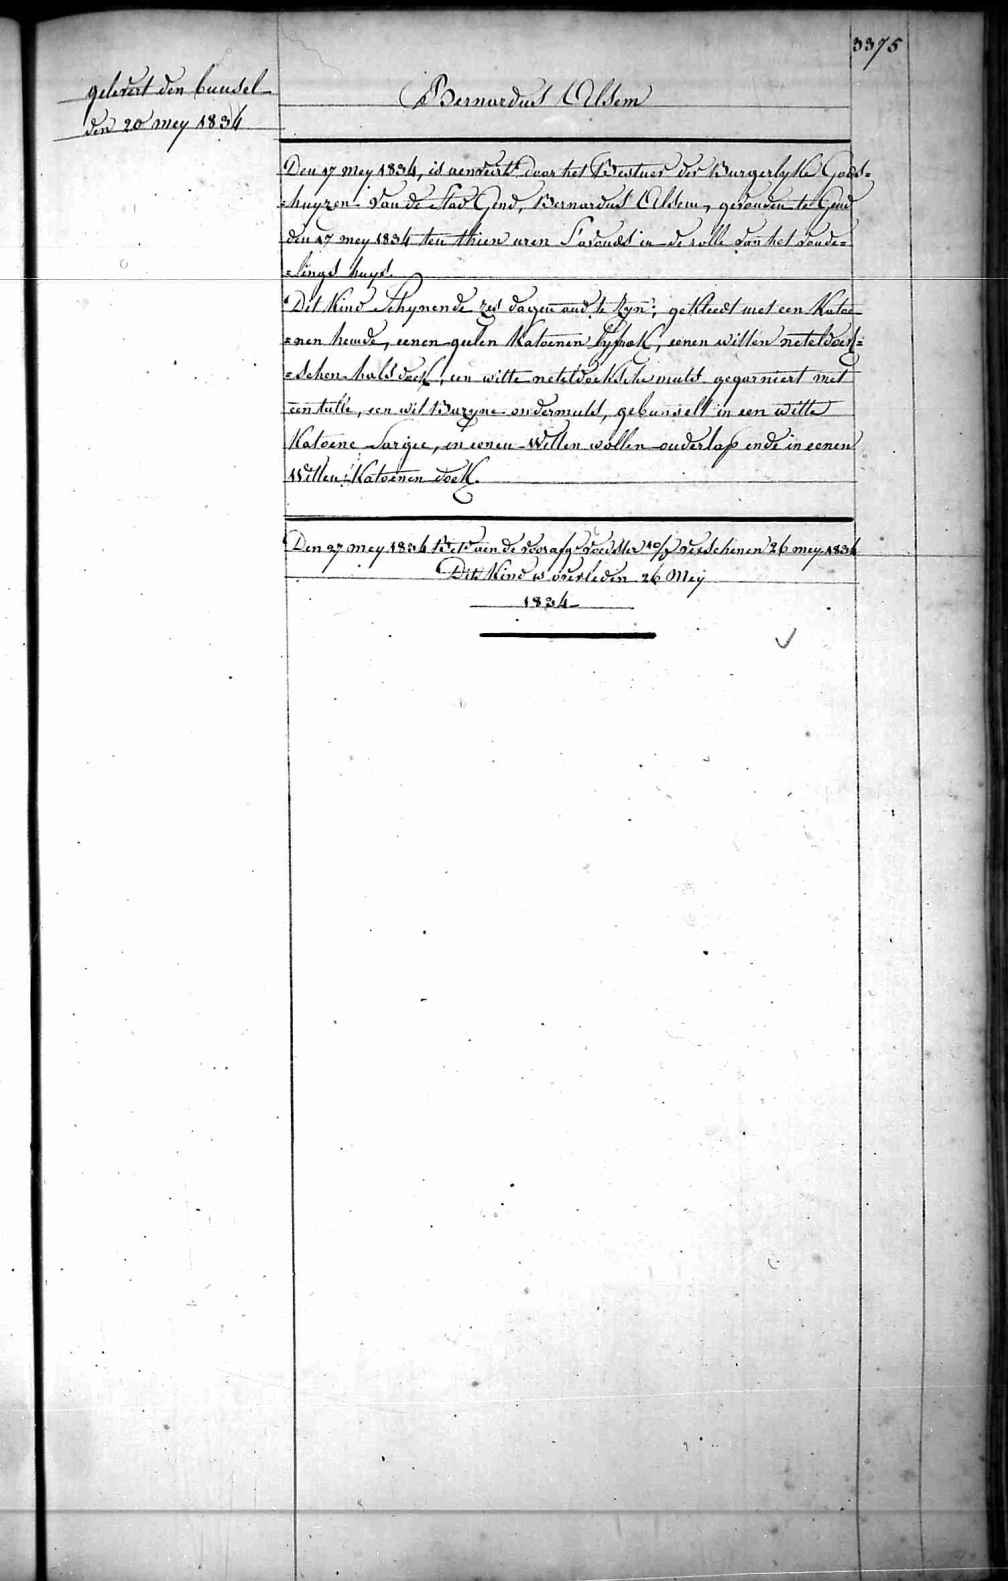 3375
gelevert den bunsel
den 20 mey 1834
Bernardus Alsem
Den 17 mey 1834, is aenveirt door het Bestuer der Burgerlyke Gods=
=huyzen van de stad Gend, Bernardus Alsem, gevonden te Gend
den 17 mey 1834 ten thien uren s'avonds in de rolle van het vonde=
=lings huys
Dit Kind Schynende zes dagen oud te zyn; gekleedt met een Katoe=
=nen hemde, eenen gelen Katoenen lyfrok, eenen witten neteldoek=
=schen halsdoek, een witte neteldoeksche muts gegarniert met
een tulle, een wit Bazyne ondermuts, gebunselt in een witte
Katoene Sargie, in eenen Witten wollen onderlap ende in eenen
Witten Katoenen doek.
Den 27 mey 1834 aen de voedster verschenen 26 mey 1834
Dit Kind is overleden 26 Mey
1834